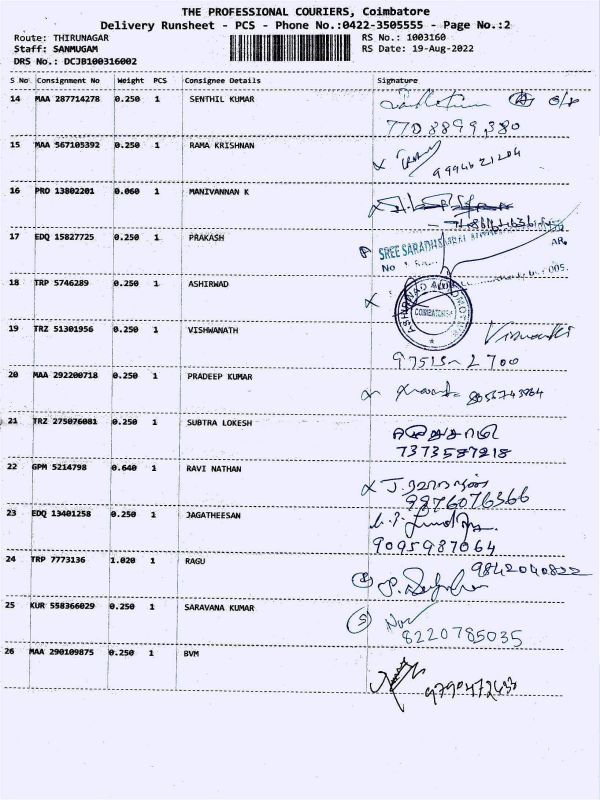 THE PROFESSIONAL COURIERS, Coimbatore
Delivery Runsheet - PCS - Phone No.:0422-3505555 - Page No.:2
Route: THIRUNAGAR RS No.: 1003160
Staff: SANMUGAM RS Date: 19-Aug-2022
DRS No.: DCJB100316002
S No Consignment No Weight PCS Consignee Details Signature
14 MAA 287714278 0.250 1 SENTHIL KUMAR
7708899380
15 MAA 567105392 0.250 1 RAMA KRISHNAN
9994621204
16 PRO 13802201 0.060 1 MANIVANNAN K
17 EDQ 15827725 0.250 1 PRAKASH
SREE
18 TRP 5746289 0.250 1 ASHIRWAD
COIMBATORE
19 TRZ 51301956 0.250 1 VISHWANATH
20 MAA 292200718 0.250 1 PRADEEP KUMAR
8056743964
21 TRZ 275076081 0.250 1 SUBTRA LOKESH
7373587218
22 GPM 5214798 0.640 1 RAVI NATHAN
9976076366
23 EDQ 13401258 0.250 1 JAGATHEESAN
9095987064
24 TRP 7773136 1.020 1 RAGU
9842040822
25 KUR 558366029 0.250 1 SARAVANA KUMAR
8220785035
26 MAA 290109875 0.250 1 BVM
9790472633